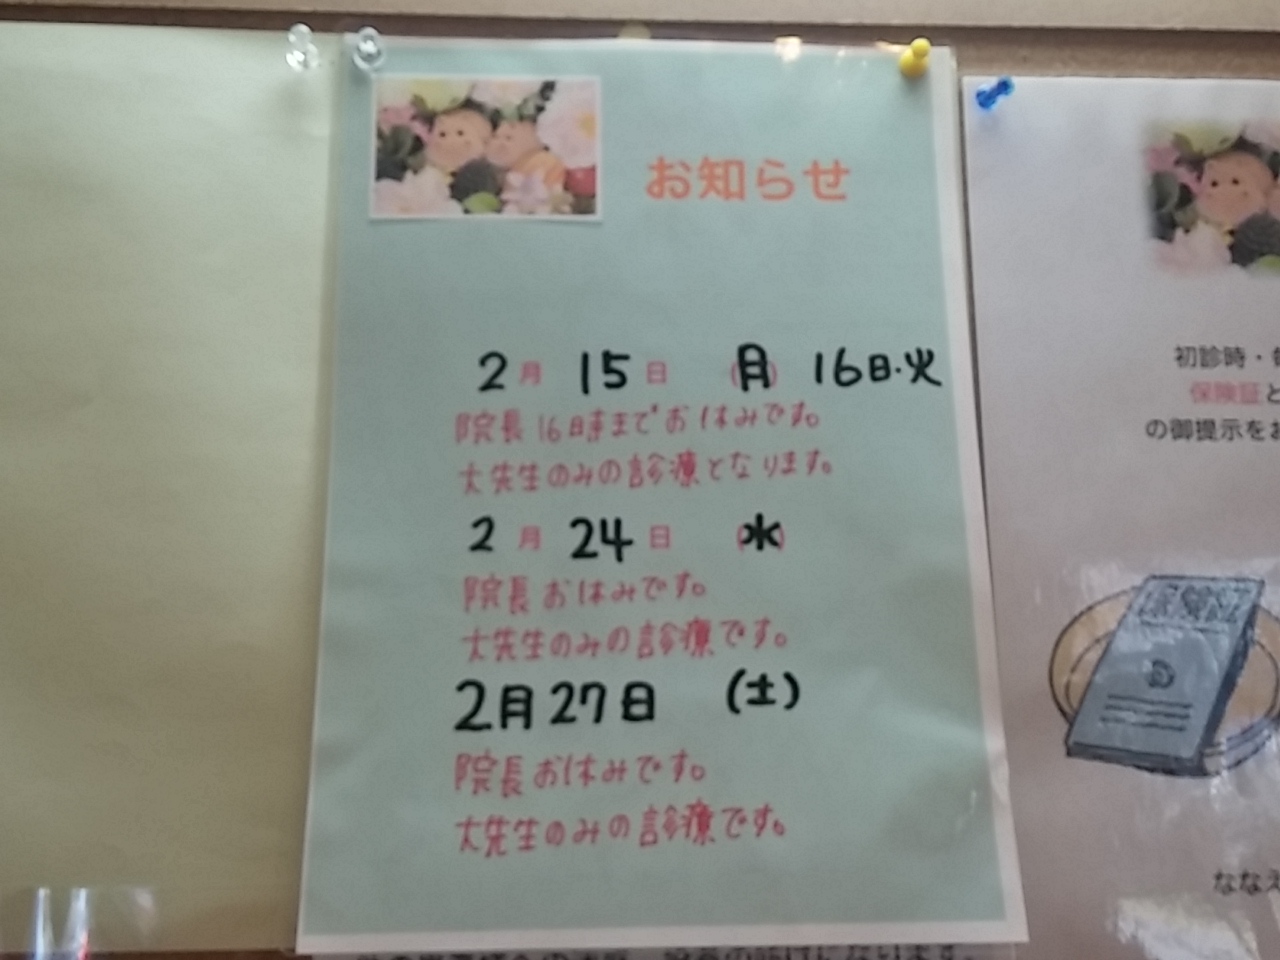 お知らせ
2月 15日 (月) 16日・火
院長16時までお休みです。
大先生のみの診療となります。
2月 24日 (水)
院長お休みです。
大先生のみの診療です。
2月27日 (土)
院長お休みです。
大先生のみの診療です。
初診時・毎
保険証と
の御提示をお
ななえ